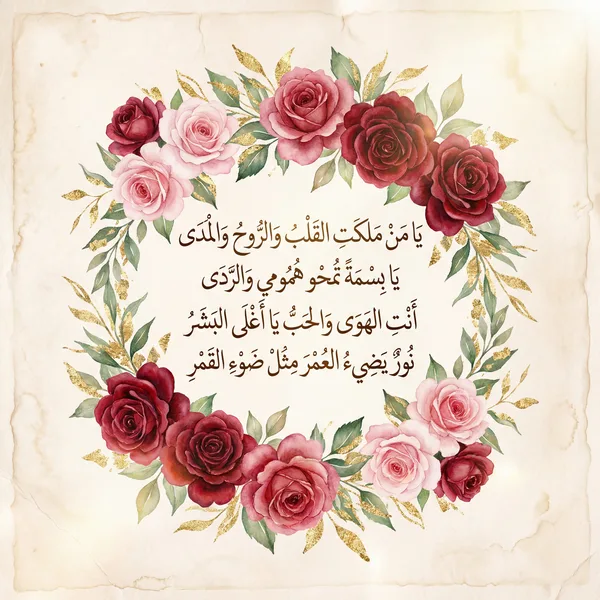 يَا مَنْ مَلَكَتِ القَلْبُ وَالرُّوحُ وَالْمَدَى
يَا بِسْمَةً تَمْحُو هُمُومِي وَالرَّدَى
أَنْتِ الهَوَى وَالحَبُّ يَا أَغْلَى البَشَرُ
نُورٌ يَضِيءُ العُمْرَ مِثْلُ ضَوْءِ القَمْرِ